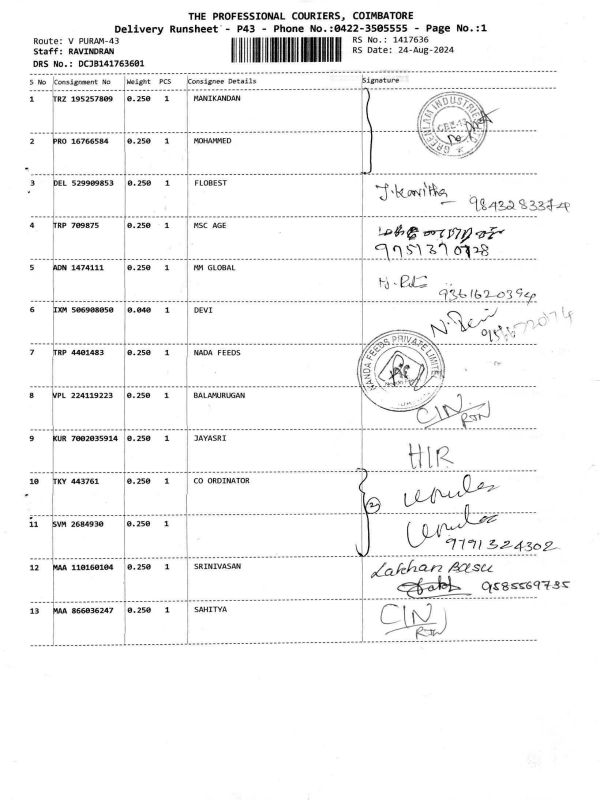 THE PROFESSIONAL COURIERS, COIMBATORE
Delivery Runsheet - P43 - Phone No.:0422-3505555 - Page No.:1
Route: V PURAM-43
RS No.: 1417636
Staff: RAVINDRAN
RS Date: 24-Aug-2024
DRS No.: DCJB141763601
S No Consignment No Weight PCS Consignee Details Signature
1 TRZ 195257809 0.250 1 MANIKANDAN
GREENLAM INDUSTRIES
2 PRO 16766584 0.250 1 MOHAMMED
3 DEL 529909853 0.250 1 FLOBEST J. Kavitha
9843283374
4 TRP 709875 0.250 1 MSC AGE
9751370728
5 ADN 1474111 0.250 1 MM GLOBAL
9361620394
6 IXM 506908050 0.040 1 DEVI N. Devi
7 TRP 4401483 0.250 1 NADA FEEDS
NANDA FEEDS PRIVATE LIMITED
8 VPL 224119223 0.250 1 BALAMURUGAN CIN
RTN
9 KUR 7002035914 0.250 1 JAYASRI
HIR
10 TKY 443761 0.250 1 CO ORDINATOR
(2)
11 SVM 2684930 0.250 1
9791324302
12 MAA 110160104 0.250 1 SRINIVASAN Lakhan Basu
9585569735
13 MAA 866036247 0.250 1 SAHITYA CIN
RTN